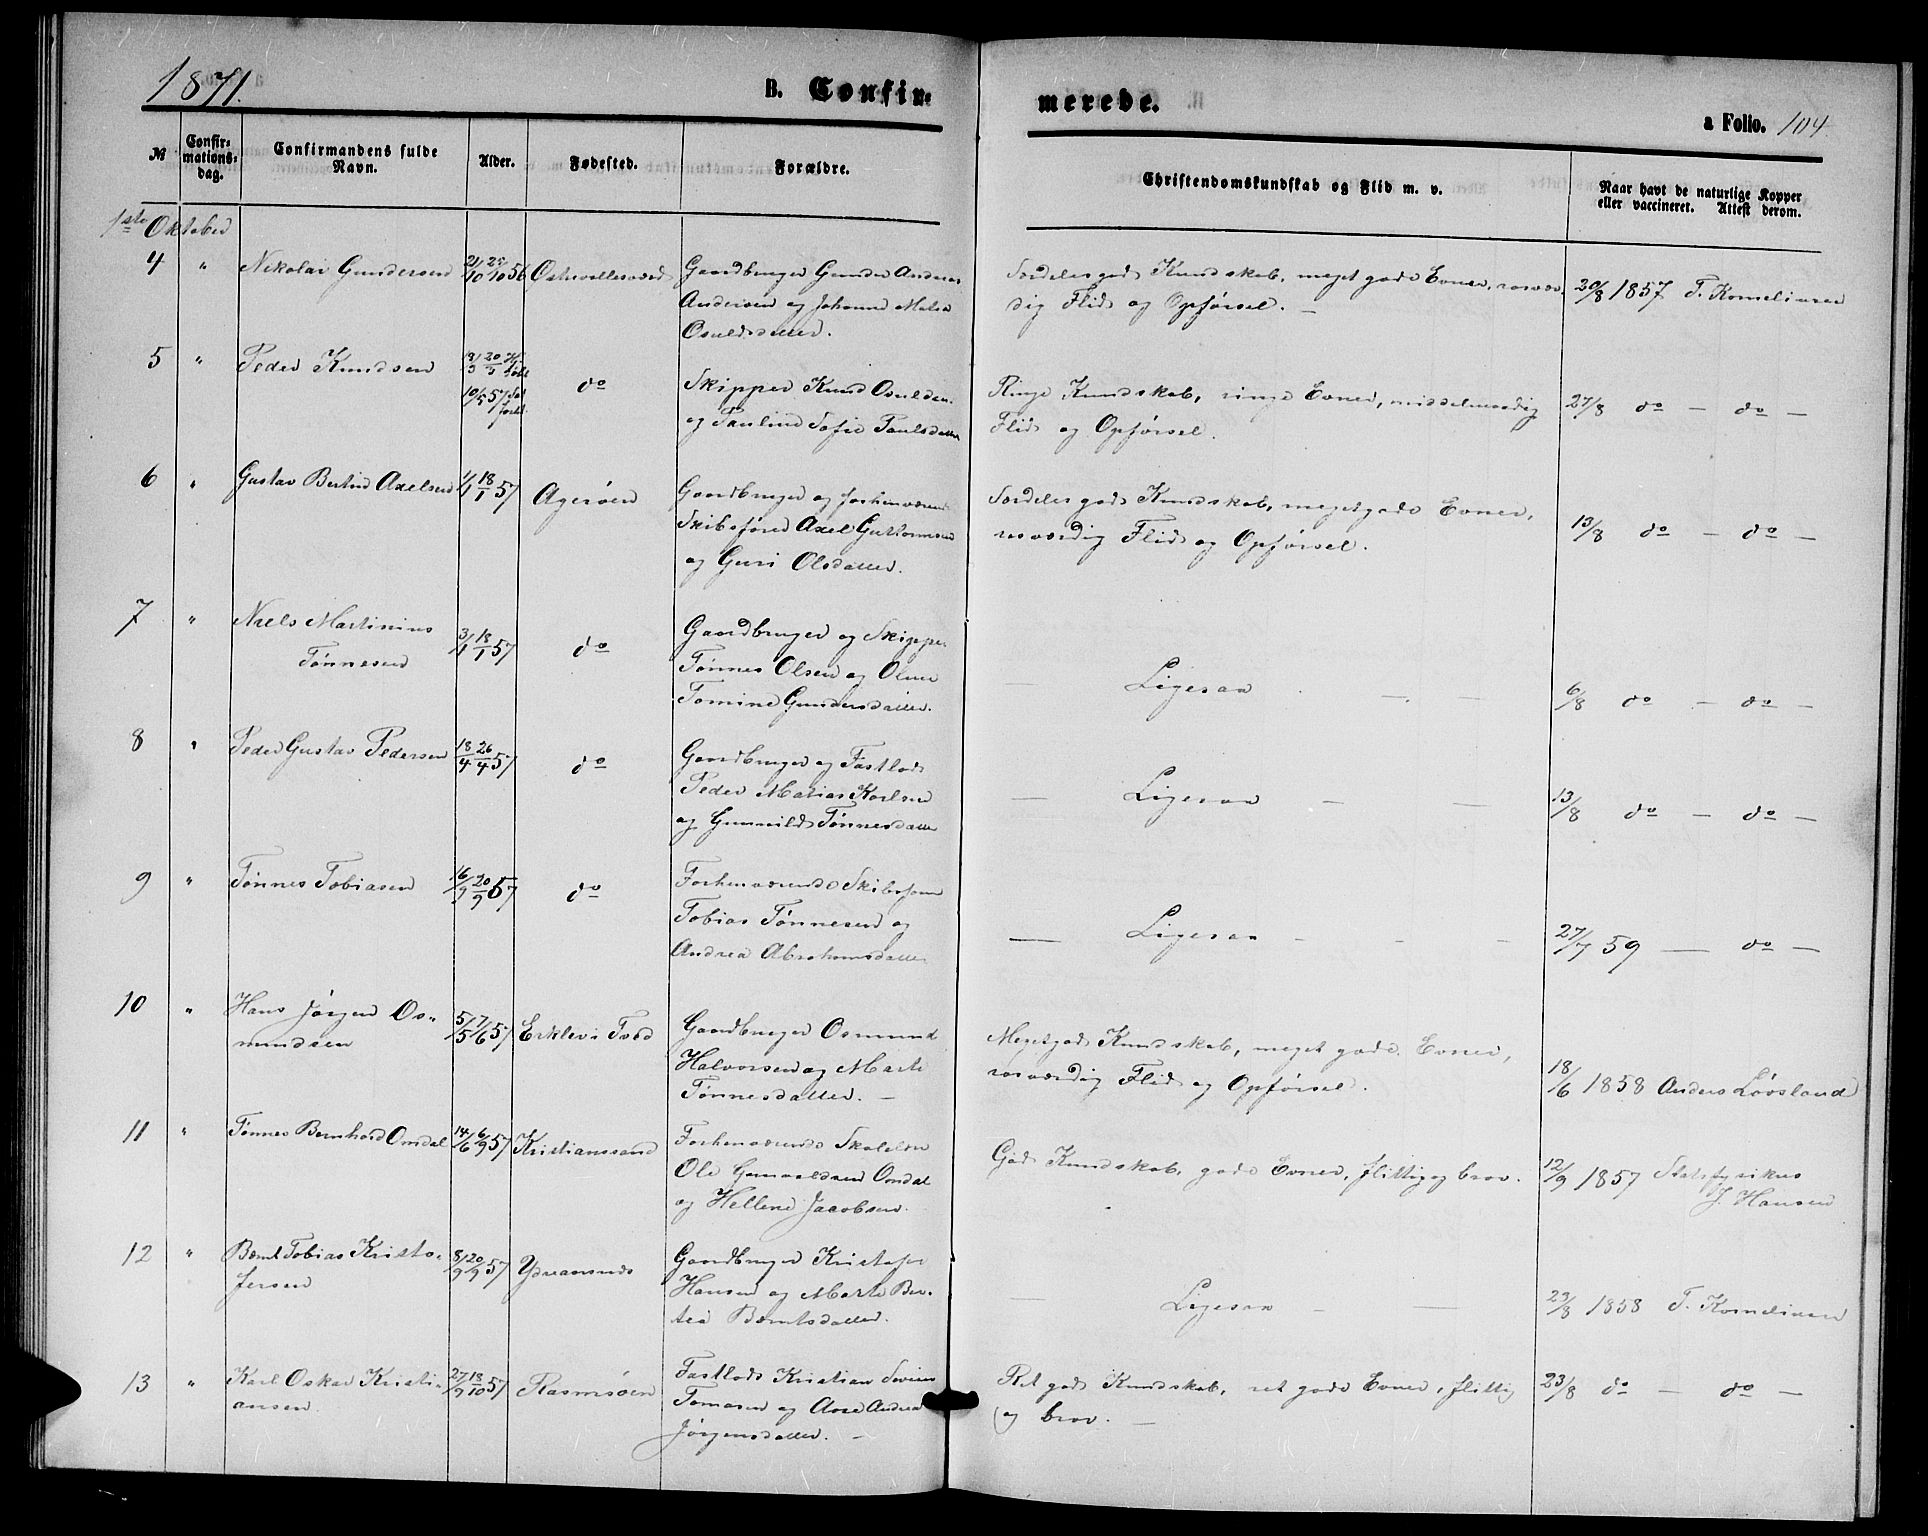 1871.
B. Confir-
merede.
a Folio. 104.
№ Confir-
mations-
dag. Confirmandens fulde
Navn. Alder. Fødested. Forældre. Christendomskundskab og Flid m. v. Naar havt de naturlige Kopper
eller vaccineret. Attest derom.
1ste Oktober
4 " Nikolai Gundersen 21/10 56 Gaardbruger Gunder Anders
Andersen og Johanne Malia
Osuldsdatter.
Særdeles god Kundskab, meget gode Evner, rosvær-
dig Flid og Opførsel. —
20/8 1857 T. Korneliusen
5 " Peder Knudsen do
Skipper Knud Osuldsen
og Pauline Sofie Paulsdatter
Ringe Kundskab, ringe Evner, middelmaadig
Flid og Opførsel.
27/8 do — do —
6 " Gustav Bertin Axelsen 1/1 18/1 57 Agerøen
Gaardbruger og forhenværende
Skibsfører Axel Guttormsen
og Guri Olsdatter.
Særdeles god Kundskab, meget gode Evner,
rosværdig Flid og Opførsel.
13/8 do — do —
7 " Niels Martinius
Tønnesen 3/1 18/1 57 do
Gaardbruger og Skipper
Tønnes Olsen og Oline
Tomine Gundersdatter.
— Ligesaa — —
6/8 do — do —
8 " Peder Gustav Pedersen 18/4 26/4 57 do
Gaardbruger og Fastlods
Peder Matias Karlsen
og Gunnild Tønnesdatter
— Ligesaa — —
13/8 do — do —
9 " Tønnes Tobiasen 16/9 20/9 57 do
Forhenværende Skibsfører
Tobias Tønnesen og
Andrea Abrahamsdatter
— Ligesaa - - -
27/7 59 — do —
10 " Hans Jørgen Os-
mundsen 5/5 7/6 57 Esklev i Tved
Gaardbruger Osmund
Halvorsen og Marte
Tønnesdatter. —
Meget god Kundskab, meget gode Evner,
rosværdig Flid og Opførsel.
18/6 1858 Anders Løvsland
11 " Tønnes Bernhard Omdal 14/6 6/9 57 Kristianssand
Forhenværende Skolelærer
Ole Omdal
og Hellene Jacobsen.
God Kundskab, gode Evner, flittig og brav.
12/9 1857 Statsfysikus
J. Hansen
12 " Bernt Tobias Kristo-
fersen 8/9 20/9 57
Gaardbruger Kristofer
Hansen og Marte Ber-
tea Berntsdatter.
— Ligesaa — —
23/8 1858 T. Korneliusen
13 " Karl Oskar Kristi-
ansen 27/9 18/10 57 Rasmsøen
Fastlods Kristian
Tomasen og Aase Andrea
Jørgensdatter. —
Ret god Kundskab, ret gode Evner, flittig
og brav. —
23/8 do — do —